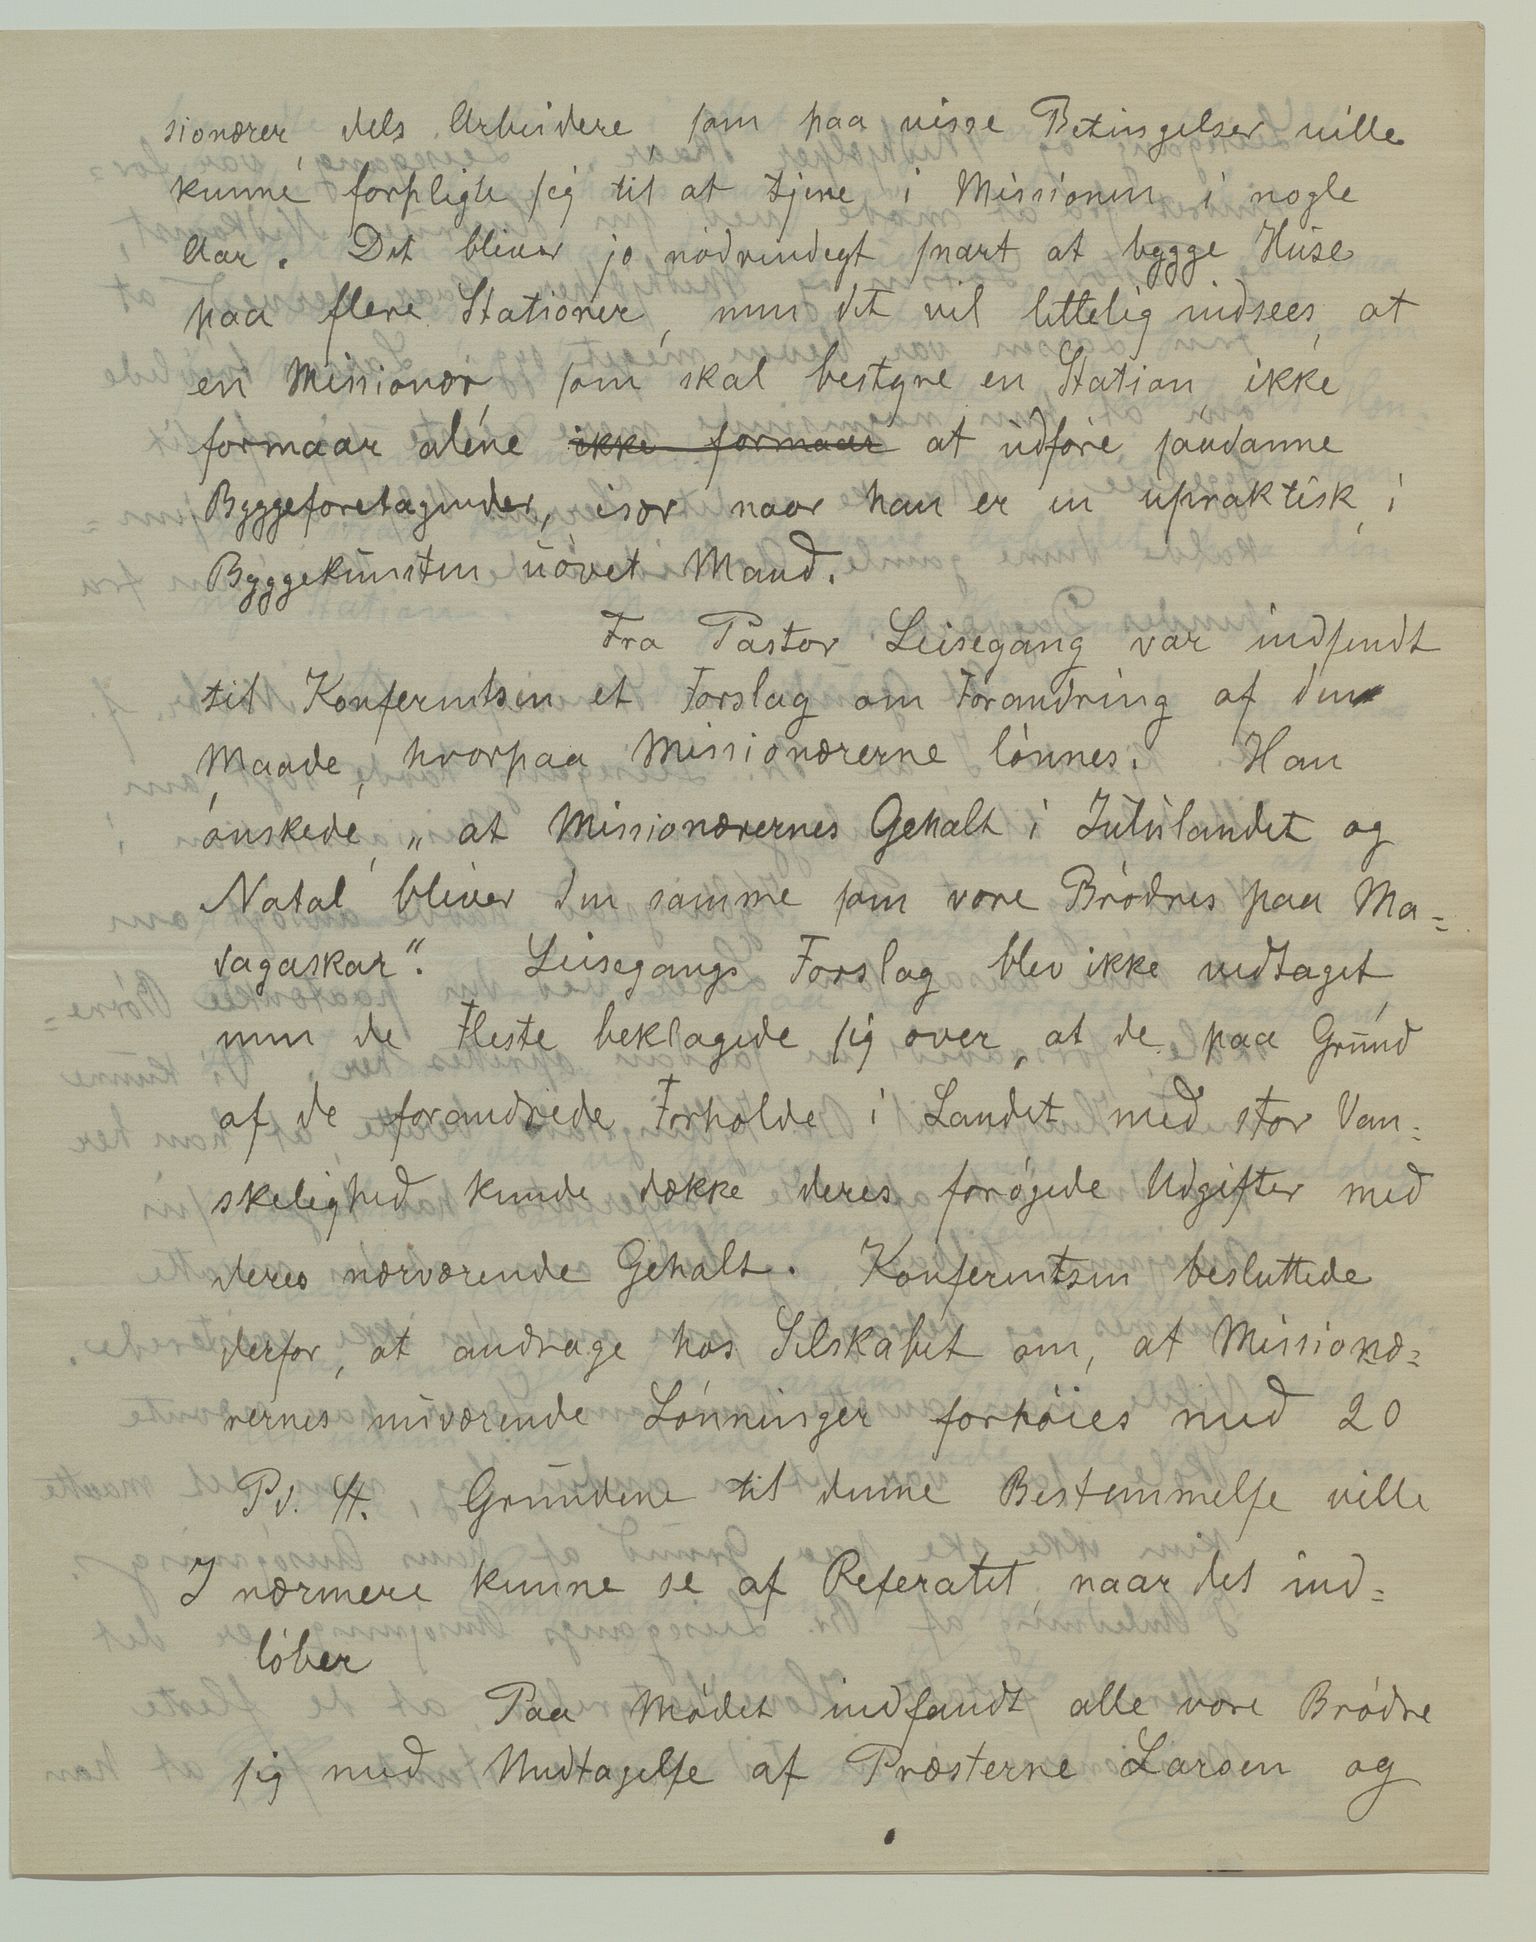 sionærer, dels Arbeidere som paa visse Betingelser ville
kunne forpligte sig til at tjene i Missionen i nogle
Aar. Det bliver jo nødvendigt snart at bygge Huse
paa flere Stationer, men det vil lettelig indsees, at
en Missionær, som skal bestyre en Station, ikke
formaar aléne ikke formaar at udføre saadanne
Byggeforetagender, især naar han er en upraktisk, i
Byggekunsten uøvet Mand.
Fra Pastor Leisegang var indsendt
til Konferentsen et Forslag om Forandring af den
Maade, hvorpaa Missionærerne lønnes. Han
ønskede, „at Missionærernes Gehalt i Zululandet og
Natal bliver den samme som vore Brødres paa Ma=
dagaskar“. Leisegangs Forslag blev ikke vedtaget,
men de Fleste beklagede sig over, at de paa Grund
af de forandrede Forholde i Landet med stor Van=
skelighed kunde dække deres forøgede Udgifter med
deres nærværende Gehalt. Konferentsen besluttede
derfor, at andrage hos Selskabet om, at Missionæ=
rernes nuværende Lønninger forhøies med 20
Pd. St. Grundene til denne Bestemmelse ville
I nærmere kunne se af Referatet, naar det ind=
løber
Paa Mødet indfandt alle vore Brødre
sig med Undtagelse af Præsterne Larsen og